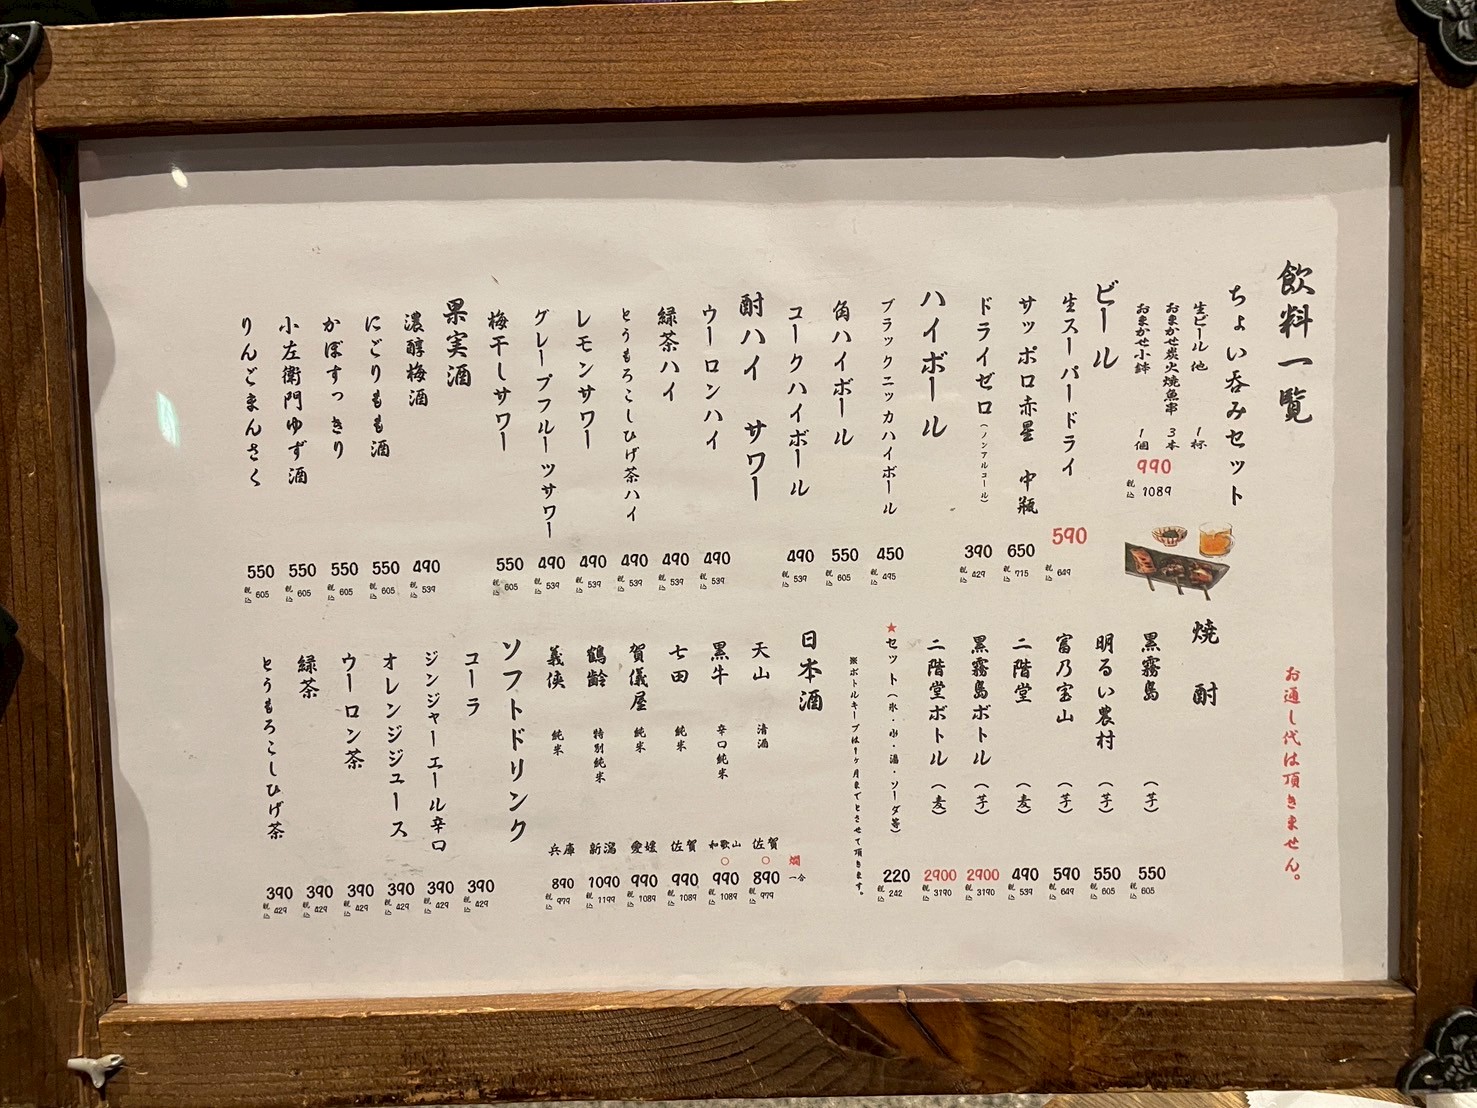 飲料一覧
ちょい呑みセット
生ビール他 1杯
おまかせ炭火焼魚串 3本
おまかせ小鉢 1個
990
税込 1089
ビール
生スーパードライ 590 税込 649
サッポロ赤星 中瓶 650 税込 715
ドライゼロ(ノンアルコール) 390 税込 429
ハイボール
ブラックニッカハイボール 450 税込 495
角ハイボール 550 税込 605
コークハイボール 490 税込 539
酎ハイ サワー
ウーロンハイ 490 税込 539
緑茶ハイ 490 税込 539
とうもろこしひげ茶ハイ 490 税込 539
レモンサワー 490 税込 539
グレープフルーツサワー 490 税込 539
梅干しサワー 550 税込 605
果実酒
濃醇梅酒 490 税込 539
にごりもも酒 550 税込 605
かぼすっきり 550 税込 605
小左衛門ゆず酒 550 税込 605
りんごまんさく 550 税込 605
お通し代は頂きません。
焼酎
黒霧島 (芋) 550 税込 605
明るい農村 (芋) 550 税込 605
富乃宝山 (芋) 590 税込 649
二階堂 (麦) 490 税込 539
黒霧島ボトル (芋) 2900 税込 3190
二階堂ボトル (麦) 2900 税込 3190
★セット(氷・水・湯・ソーダ等) 220 税込 242
※ボトルキープは1ヶ月までとさせて頂きます。
日本酒 燗 一合
天山 清酒 佐賀 ○ 890 税込 979
黒牛 辛口純米 和歌山 ○ 990 税込 1089
七田 純米 佐賀 990 税込 1089
賀儀屋 純米 愛媛 990 税込 1089
鶴齢 特別純米 新潟 1090 税込 1199
義侠 純米 兵庫 890 税込 979
ソフトドリンク
コーラ 390 税込 429
ジンジャーエール辛口 390 税込 429
オレンジジュース 390 税込 429
ウーロン茶 390 税込 429
緑茶 390 税込 429
とうもろこしひげ茶 390 税込 429